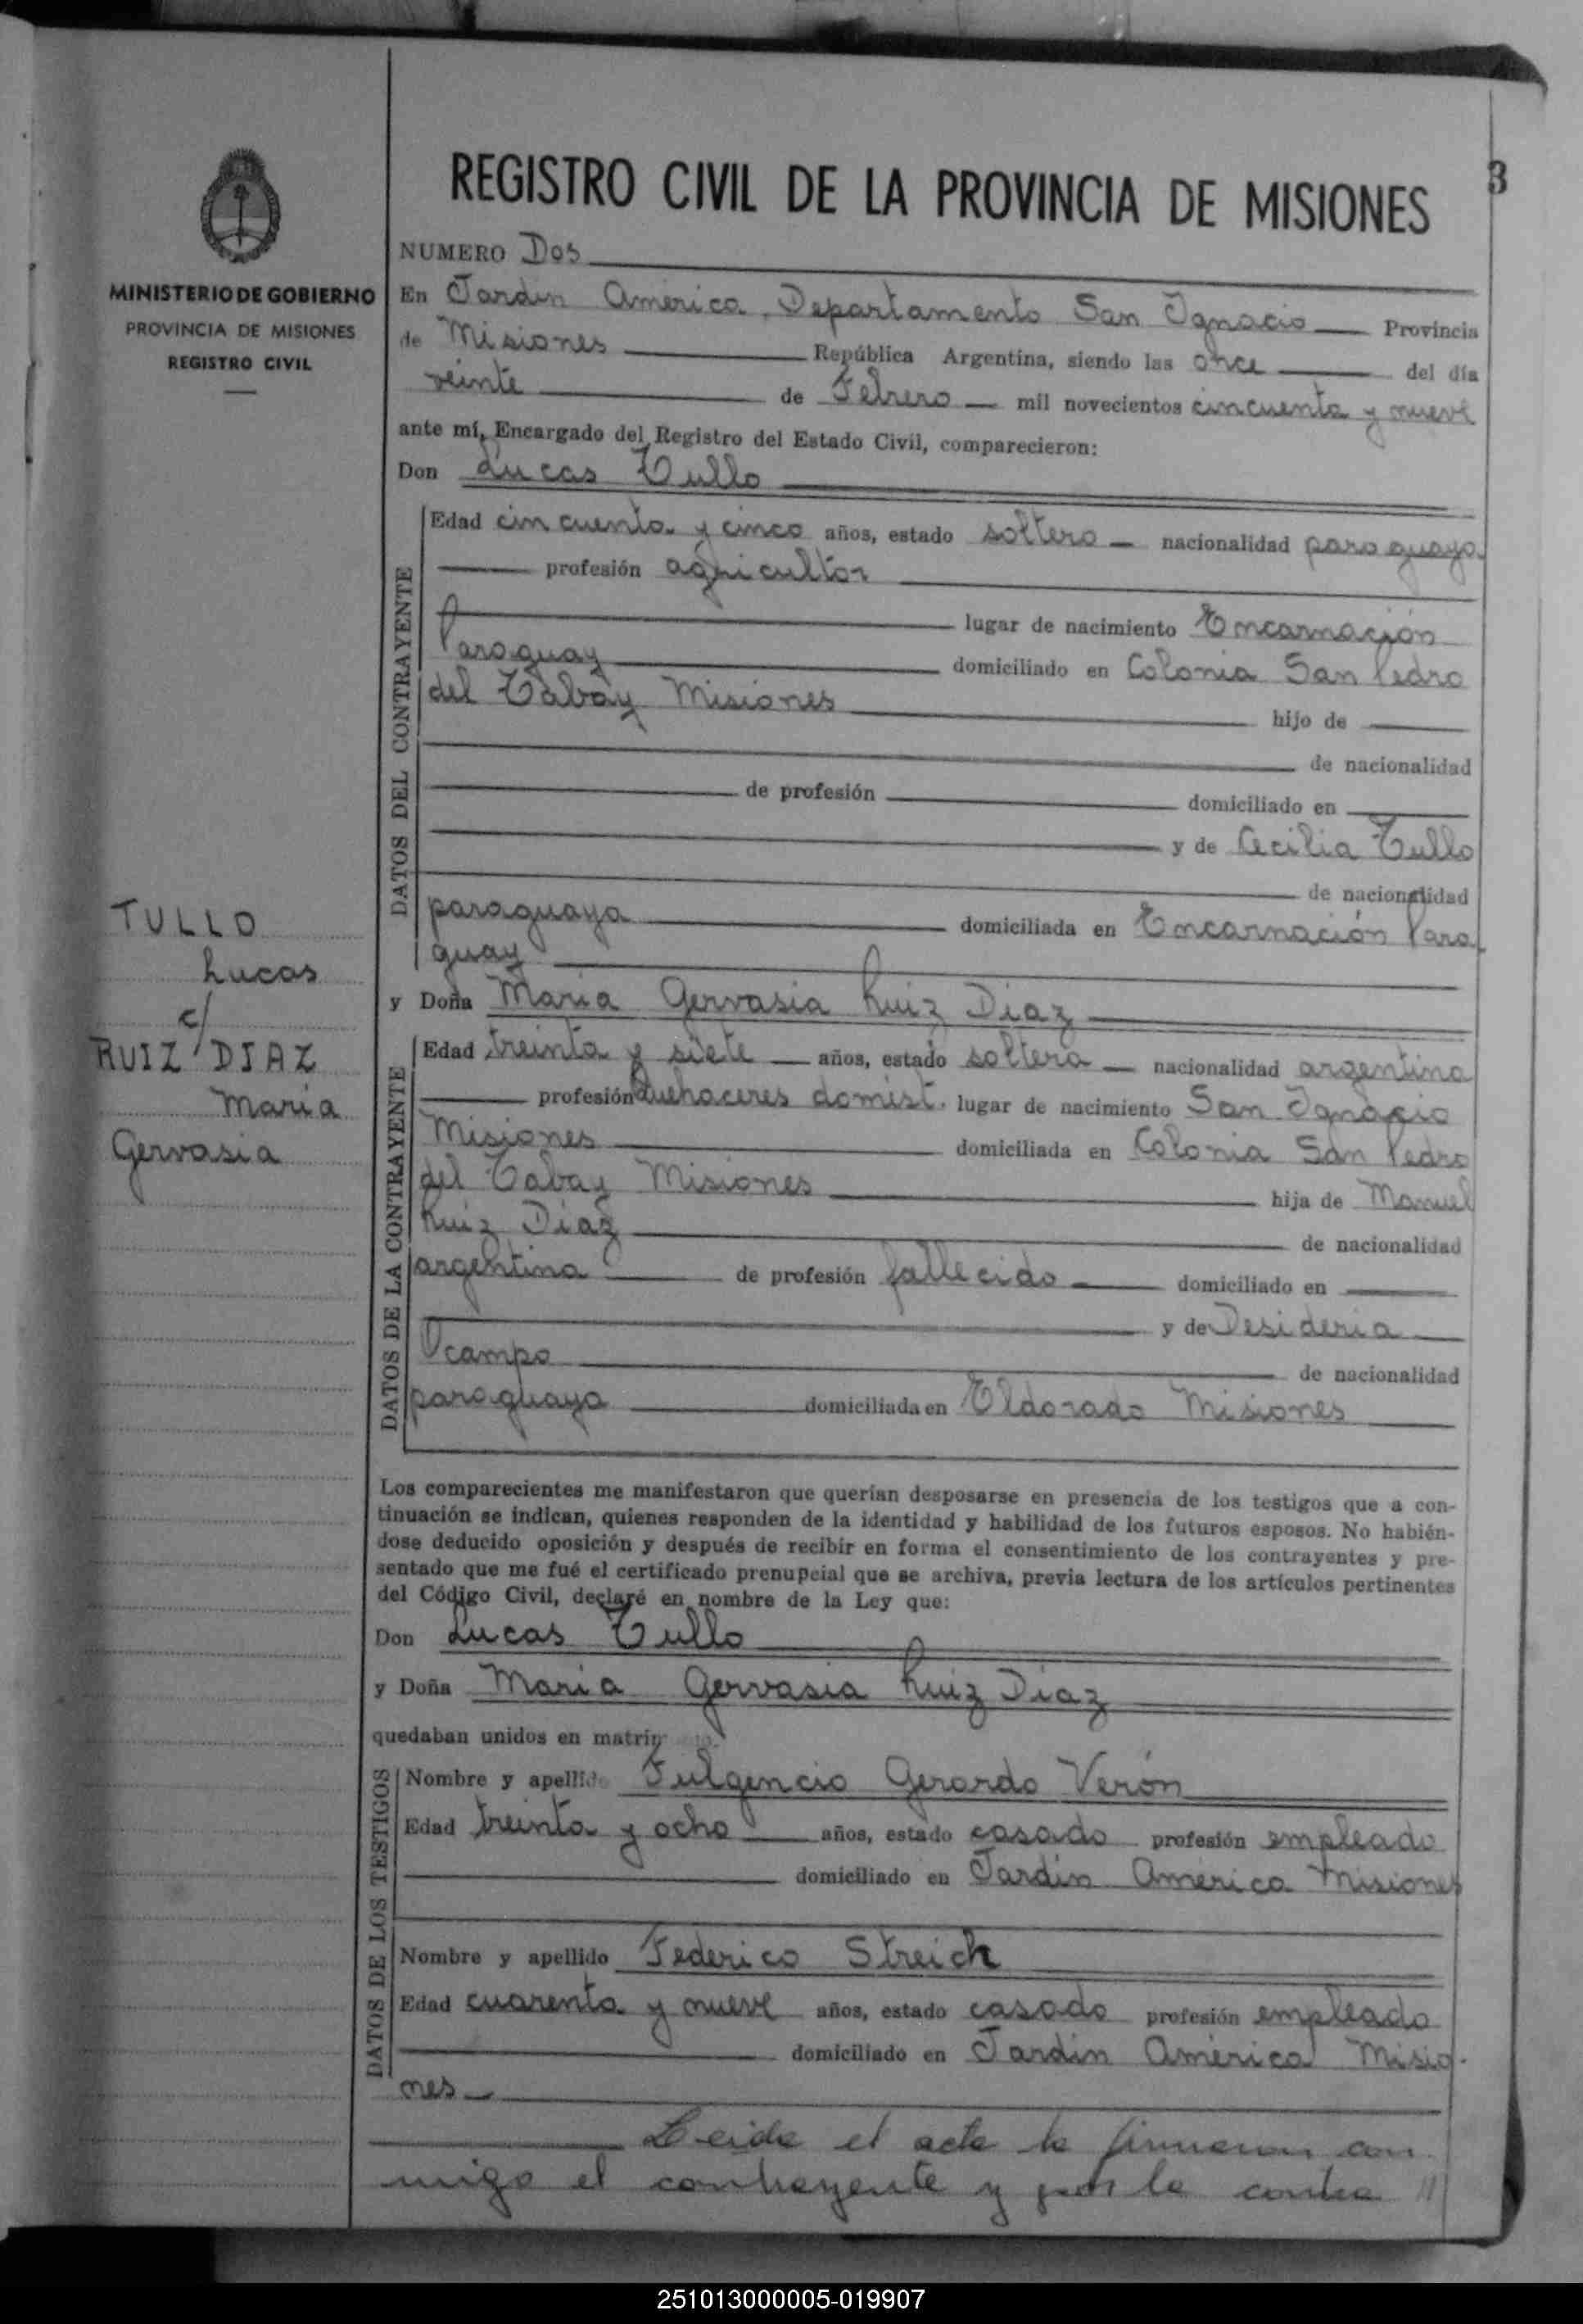 REGISTRO CIVIL DE LA PROVINCIA DE MISIONES
3
MINISTERIO DE GOBIERNO
PROVINCIA DE MISIONES
REGISTRO CIVIL
NUMERO Dos
En Jardin América, Departamento San Ignacio Provincia
de Misiones República Argentina, siendo las once del día
veinte de Febrero mil novecientos cincuenta y nueve
ante mí, Encargado del Registro del Estado Civil, comparecieron:
Don Lucas Tullo
DATOS DEL CONTRAYENTE
Edad cincuenta y cinco años, estado soltero nacionalidad paraguaya
profesión agricultor
lugar de nacimiento Encarnación
Paraguay domiciliado en Colonia San Pedro
del Tabay Misiones hijo de
de nacionalidad
de profesión domiciliado en
y de Cecilia Tullo
de nacionalidad
paraguaya domiciliada en Encarnación Para
guay
TULLO
Lucas
c/
RUIZ DIAZ
Maria
Gervasia
y Doña Maria Gervasia Ruiz Diaz
DATOS DE LA CONTRAYENTE
Edad treinta y siete años, estado soltera nacionalidad argentina
profesión Quehaceres domést. lugar de nacimiento San Ignacio
Misiones domiciliada en Colonia San Pedro
del Tabay Misiones hija de Manuel
Ruiz Diaz de nacionalidad
argentina de profesión fallecido domiciliado en
y de Desideria
Ocampo de nacionalidad
paraguaya domiciliada en Eldorado Misiones
Los comparecientes me manifestaron que querían desposarse en presencia de los testigos que a con-
tinuación se indican, quienes responden de la identidad y habilidad de los futuros esposos. No habién-
dose deducido oposición y después de recibir en forma el consentimiento de los contrayentes y pre-
sentado que me fué el certificado prenupcial que se archiva, previa lectura de los artículos pertinentes
del Código Civil, declaré en nombre de la Ley que:
Don Lucas Tullo
y Doña Maria Gervasia Ruiz Diaz
quedaban unidos en matrim
DATOS DE LOS TESTIGOS
Nombre y apellido Fulgencio Gerardo Verón
Edad treinta y ocho años, estado casado profesión empleado
domiciliado en Jardin América Misiones
Nombre y apellido Federico Streich
Edad cuarenta y nueve años, estado casado profesión empleado
domiciliado en Jardin América Misio-
nes
Leida el acta la firmaron con
migo el contrayente y por la contra //
251013000005-019907